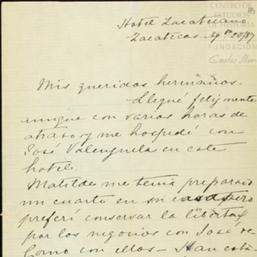 CENTRO DE
ESTUDIOS
FUNDACIÓN
Carlos Slim
Hotel Zacatecano
Zacatecas, 20/87
Mis queridos hermanos.
Llegué felizmente
aunque con varias horas de
atraso y me hospedé con
José Valenzuela en este
hotel.
Matilde me tenía preparado
un cuarto en su casa pero
preferí conservar la libertad
por los negocios con José
Como con ellos — Han